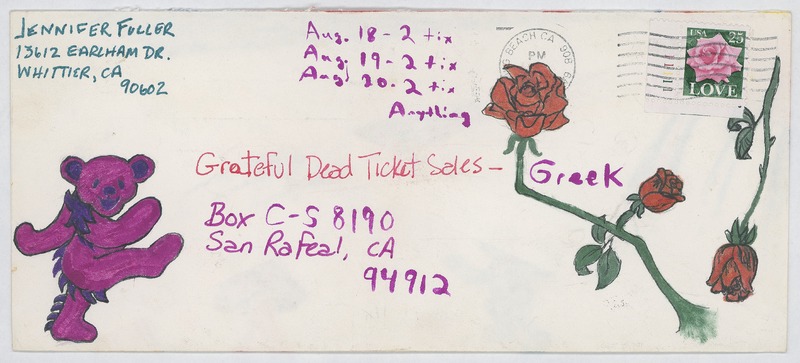 JENNIFER FULLER
13612 EARLHAM DR.
WHITTIER, CA
90602
Aug. 18 - 2 tix
Aug. 19 - 2 tix
Aug. 20 - 2 tix
Anything
BEACH CA 906
PM
USA 25
LOVE
Grateful Dead Ticket Sales - Greek
Box C-S 8190
San Rafeal, CA
94912